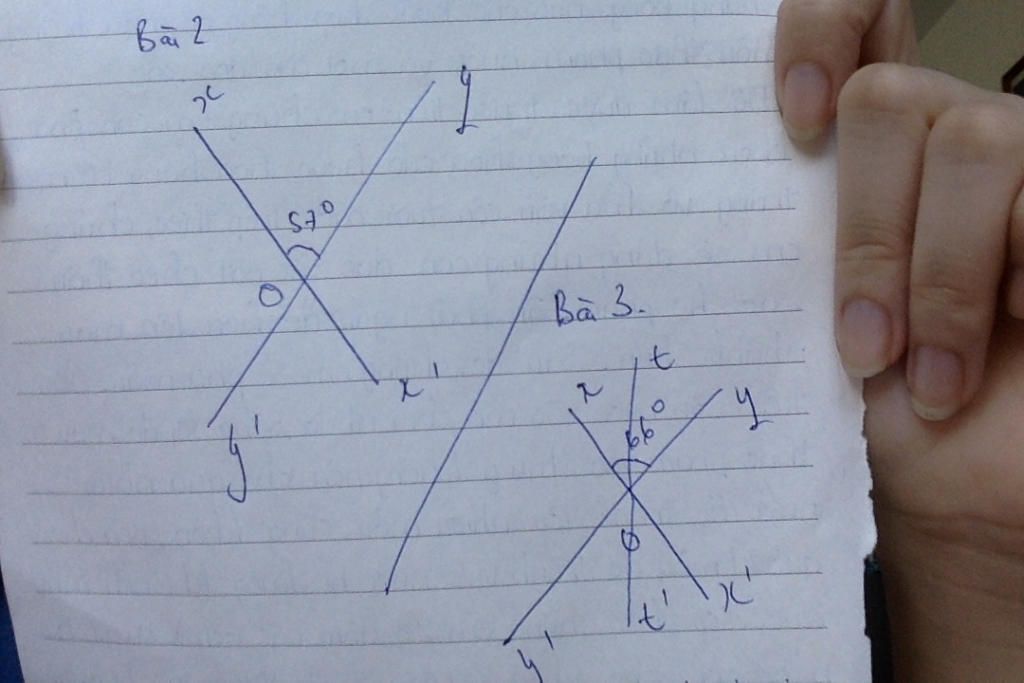 Bài 2
x
y
57°
O
x'
y'
Bài 3.
t
x
y
66°
O
x'
t'
y'